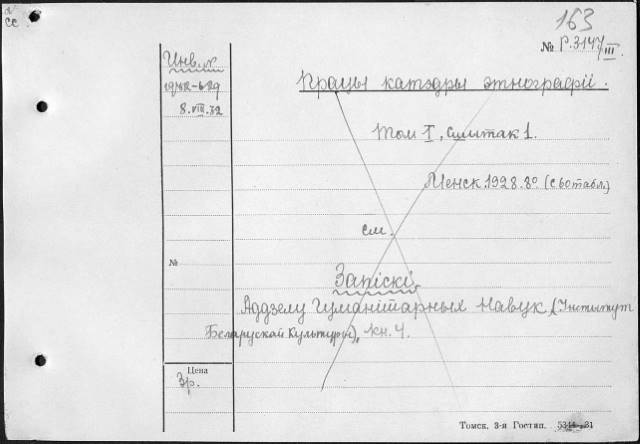 СС
163
№ Р.3147/III
Инв. №
19732-629
8.VIII.32
Працы катэдры этнографіі.
Том I, сшытак 1.
Менск 1928. 8º (с 60 табл.)
см.
№
Запіскі
Аддзелу Гуманітарных Навук, (Інстытут
Беларускай Культуры), кн. 4.
Цена
3р.
Томск, 3-я Гостип.